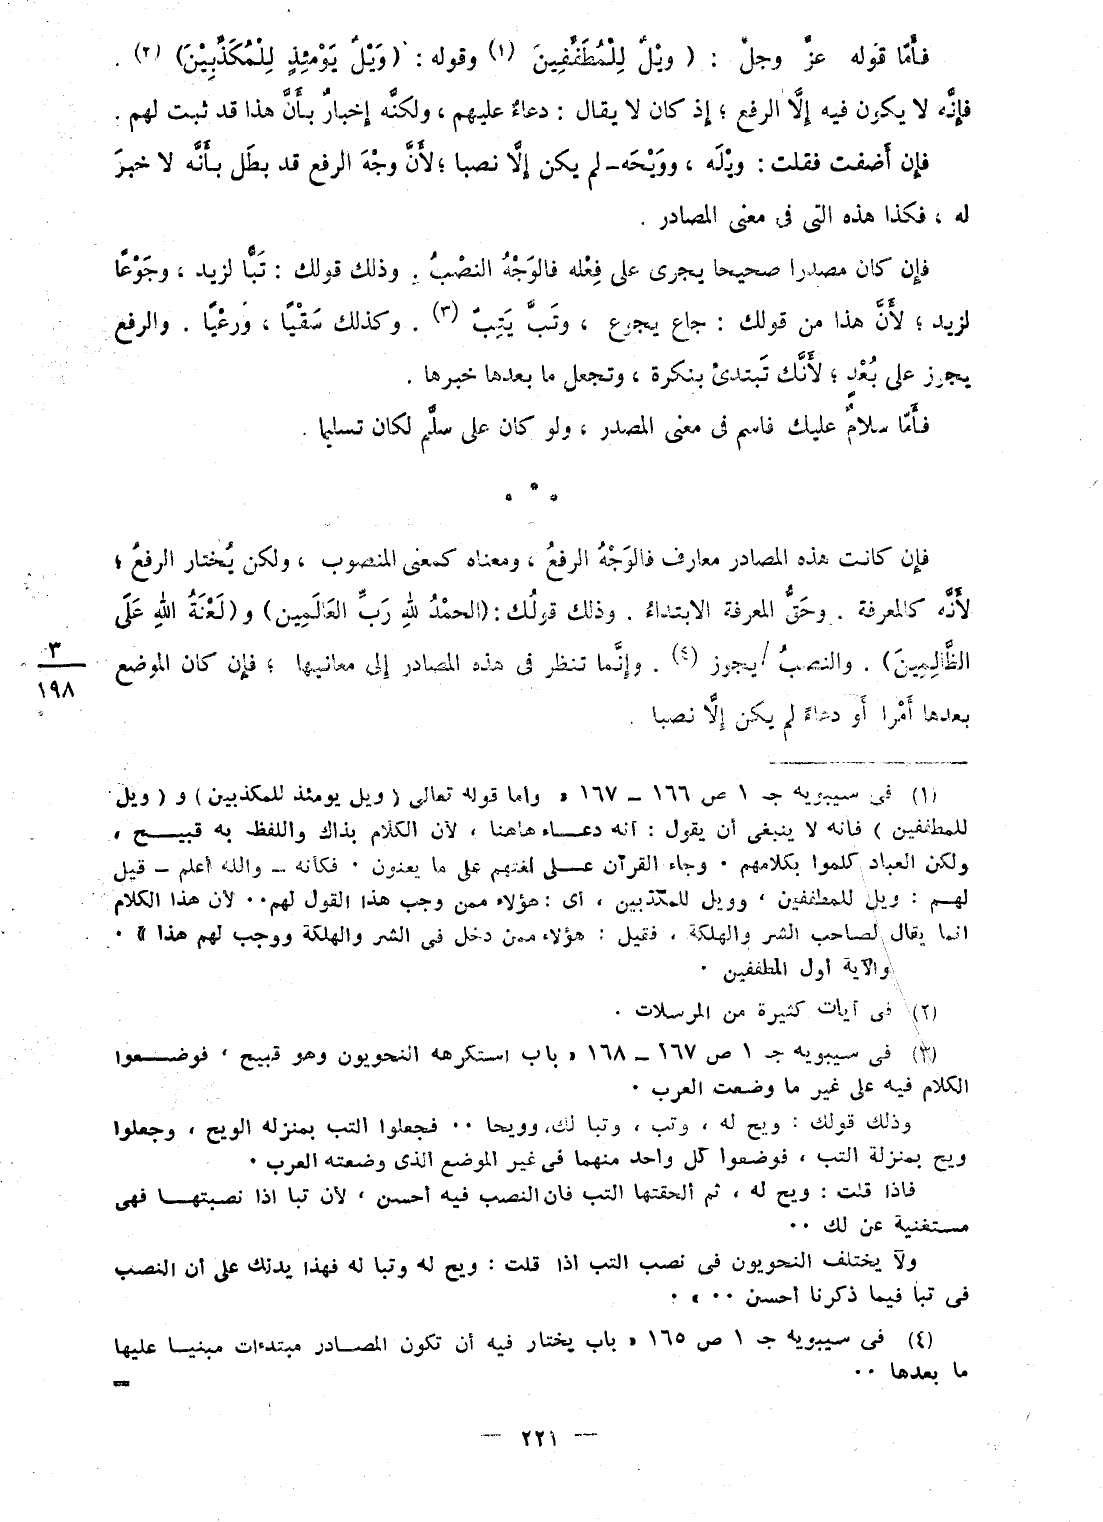 فأَمّا قوله عزَّ وجلَّ : ( ويْلٌ لِلْمُطَفِّفِينَ (١) وقوله : ( وَيْلٌ يَوْمَئِذٍ لِلْمُكَذِّبِيْنَ) (٢) .
فإِنَّه لا يكون فيه إِلَّا الرفع ؛ إِذ كان لا يقال : دعاءٌ عليهم ، ولكنَّه إِخبارٌ بأَنَّ هذا قد ثبت لهم .
فإِن أَضفت فقلت : ويْلَه ، ووَيْحَه – لم يكن إِلَّا نصبا ؛ لأَنَّ وجْهَ الرفع قد بطَل بأَنَّه لا خبرَ
له ، فكذا هذه التى فى معنى المصادر .
فإِن كان مصدرا صحيحا يجرى على فِعْله فالوَجْهُ النصْبُ . وذلك قولك : تَبًّا لزيد ، وجَوْعًا
لزيد ؛ لأَنَّ هذا من قولك : جاع يجوع ، وتَبَّ يَتِبّ (٣) . وكذلك سَقْيًا ، ورعْيًا . والرفع
يجوز على بُعْدٍ ؛ لأَنَّك تَبتدئ بنكرة ، وتجعل ما بعدها خبرها .
فأَمّا سلامٌ عليك فاسم فى معنى المصدر ، ولو كان على سلَّم لكان تسليما .
* * *
فإِن كانت هذه المصادر معارف فالوَجْهُ الرفعُ ، ومعناه كمعنى المنصوب ، ولكن يُختار الرفعُ ؛
لأَنَّه كالمعرفة . وحَقُّ المعرفة الابتداءُ . وذلك قولُك : (الحمْدُ للهِ رَبِّ العَالَمِين) و (لَعْنَةُ اللهِ عَلَى
الظَّالِمِينَ) . والنصبُ / يجوز (٤) . وإِنَّما تنظر فى هذه المصادر إِلى معانيها ؛ فإِن كان الموضع
٣
١٩٨
بعدها أَمْرا أَو دعاءً لم يكن إِلَّا نصبا .
(١) فى سيبويه جـ ١ ص ١٦٦ – ١٦٧ « واما قوله تعالى ( ويل يومئذ للمكذبين ) و ( ويل
للمطففين ) فانه لا ينبغى أن يقول : أنه دعاء هاهنا ، لأن الكلام بذاك واللفظ به قبيح ،
ولكن العباد كلموا بكلامهم ٠ وجاء القرآن على لغتهم على ما يعنون ٠ فكأنه – والله أعلم – قيل
لهم : ويل للمطففين ، وويل للمكذبين ، أى : هؤلاء ممن وجب هذا القول لهم ٠٠ لأن هذا الكلام
انما يقال لصاحب الشر والهلكة ، فقيل : هؤلاء ممن دخل فى الشر والهلكة ووجب لهم هذا » ٠
والآية أول المطففين ٠
(٢) فى آيات كثيرة من المرسلات ٠
(٣) فى سيبويه جـ ١ ص ١٦٧ – ١٦٨ « باب استكرهه النحويون وهو قبيح ، فوضعوا
الكلام فيه على غير ما وضعت العرب ٠
وذلك قولك : ويح له ، وتب ، وتبا لك، وويحا ٠٠ فجعلوا التب بمنزله الويح ، وجعلوا
ويح بمنزلة التب ، فوضعوا كل واحد منهما فى غير الموضع الذى وضعته العرب ٠
فاذا قلت : ويح له ، ثم ألحقتها التب فان النصب فيه أحسن ، لأن تبا اذا نصبتها فهى
مستغنية عن لك ٠٠
ولا يختلف النحويون فى نصب التب اذا قلت : ويح له وتبا له فهذا يدلك على أن النصب
فى تبا فيما ذكرنا أحسن ٠٠ » ٠
(٤) فى سيبويه جـ ١ ص ١٦٥ « باب يختار فيه أن تكون المصادر مبتدءات مبنيا عليها
ما بعدها ٠٠
=
— ٢٢١ —